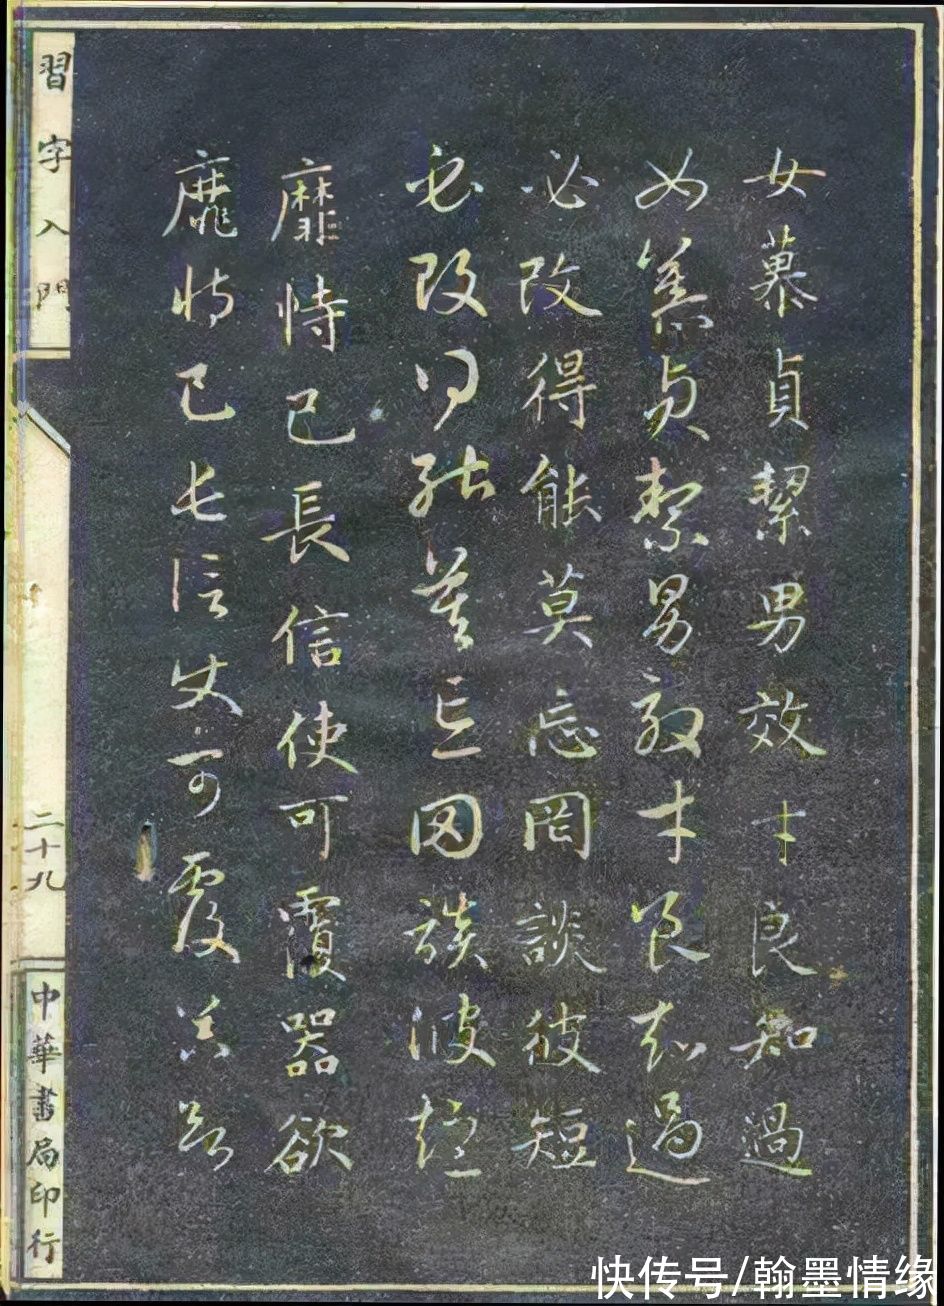 女慕貞絜男效才良知過
女慕貞絜男效才良知過
必改得能莫忘罔談彼短
必改得能莫忘罔談彼短
靡恃己長信使可覆器欲
靡恃己長信使可覆器欲
習字入門
二十九
中華書局印行
快传号/翰墨情缘